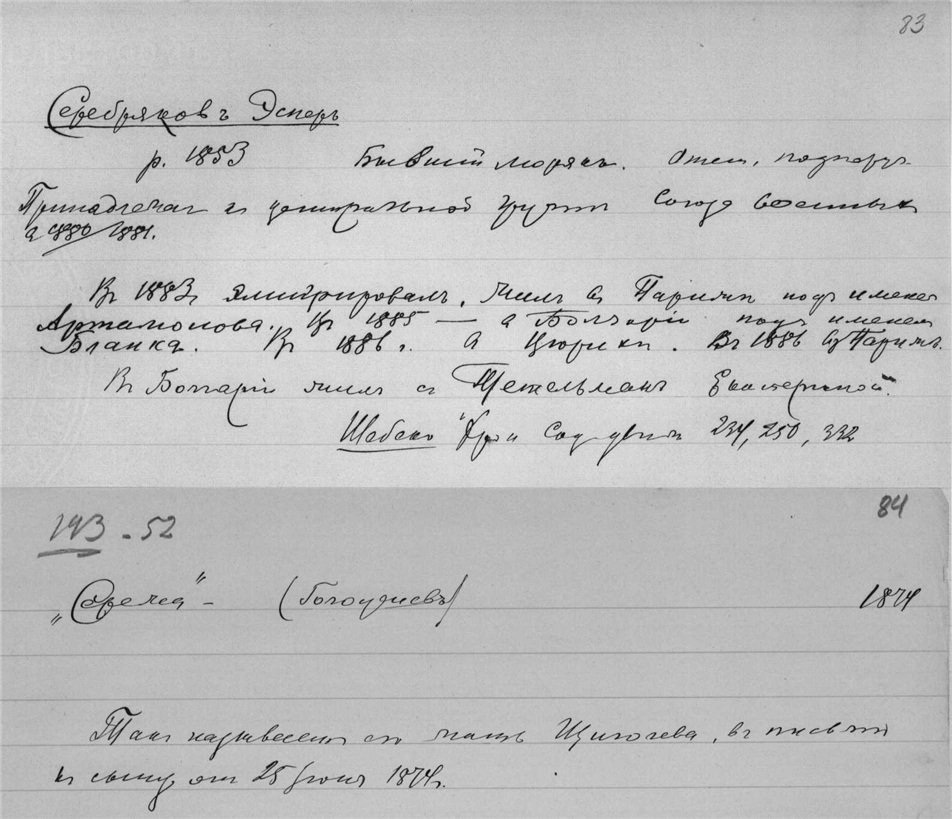 83
Серебряковъ Эсперъ
р. 1853 Бывший морякъ. Отст. подпору.
Принадлежал к центральной групп Союза военных
в 1880/1881.
Въ 1883 г эмигрировалъ. Жилъ в Париж под имен
Артамонова. Въ 1885 — в Болгаріи подъ именем
Бланка. Въ 1886 г. в Цюрихе. Въ 1886 въ Париж.
Въ Болгаріи жил с Тетельман Екатериной.
Шебеко "Хрон Соц движ 234, 250, 332
84
193 - 52
„Сережа" - 1874
Такъ называет его мать Щиголева, въ письм
къ сыну от 25 Іюня 1874 г.